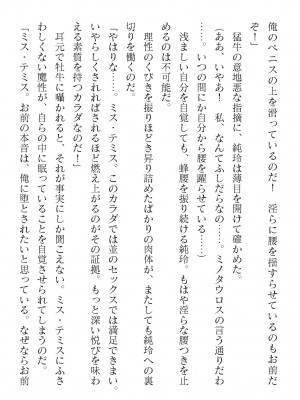 俺のペニスの上を滑っているのだ！　淫らに腰を揺すらせているのもお前だ
ぞ！」
　猛牛の意地悪な指摘に、純玲は薄目を開けて確かめた。
（ああ、いやあ！　私、なんてふしだらなの……ミノタウロスの言う通りだわ
……いつの間にか自分から腰を躍らせている……）
　浅ましい自分を自覚しても、蜂腰を振り続ける純玲。もはや淫らな腰つきを止
めるのは不可能だ。
　理性のくびきを振りほどき昇り詰めたばかりの肉体が、またしても純玲への裏
切りを働くのだ。
「やはりな……。ミス・テミス。このカラダでは並のセックスでは満足できまい。
いやらしくされればされるほど燃え上がるのがその証拠。もっと深い悦びを味わ
える素質を持つカラダなのだ！」
　耳元で牡牛に囁かれると、それが事実にしか聞こえない。ミス・テミスにふさ
わしくない魔性が、自らの中に眠っていることを自覚させられてしまうのだ。
「ミス・テミス。お前の本音は、俺に堕とされたいと思っている。なぜならお前